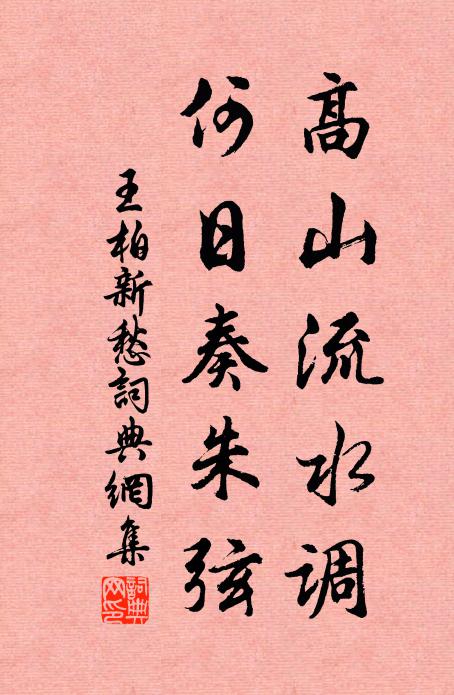 高山流水调
何日奏朱弦
王柏新愁詞典網集
詞典网印